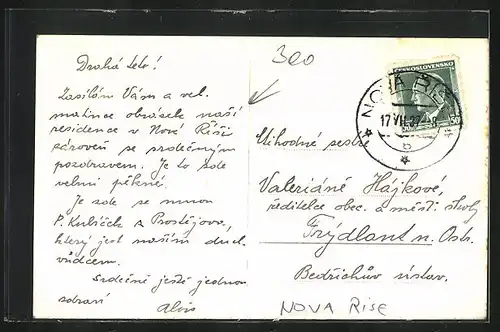 Drahá teto!
Zasílám Vám a vel.
matince obrázek naší
residence v Nové Říši
zároveň se srdečným
pozdravem. Je to zde
velmi pěkné.
Je zde se mnou
P. Kubíček z Prostějova,
který jest naším duch.
vůdcem.
Srdečně ještě jednou
zdraví
Alois
300
ČESKOSLOVENSKO
50
NOVÁ ŘÍŠE
17.VII.37
b
Ctihodné sestře
Valeriáně Hájkové,
ředitelce obec. a měšť. školy
Frýdlant n. Ostr.
Bedřichův ústav.
NOVA RISE